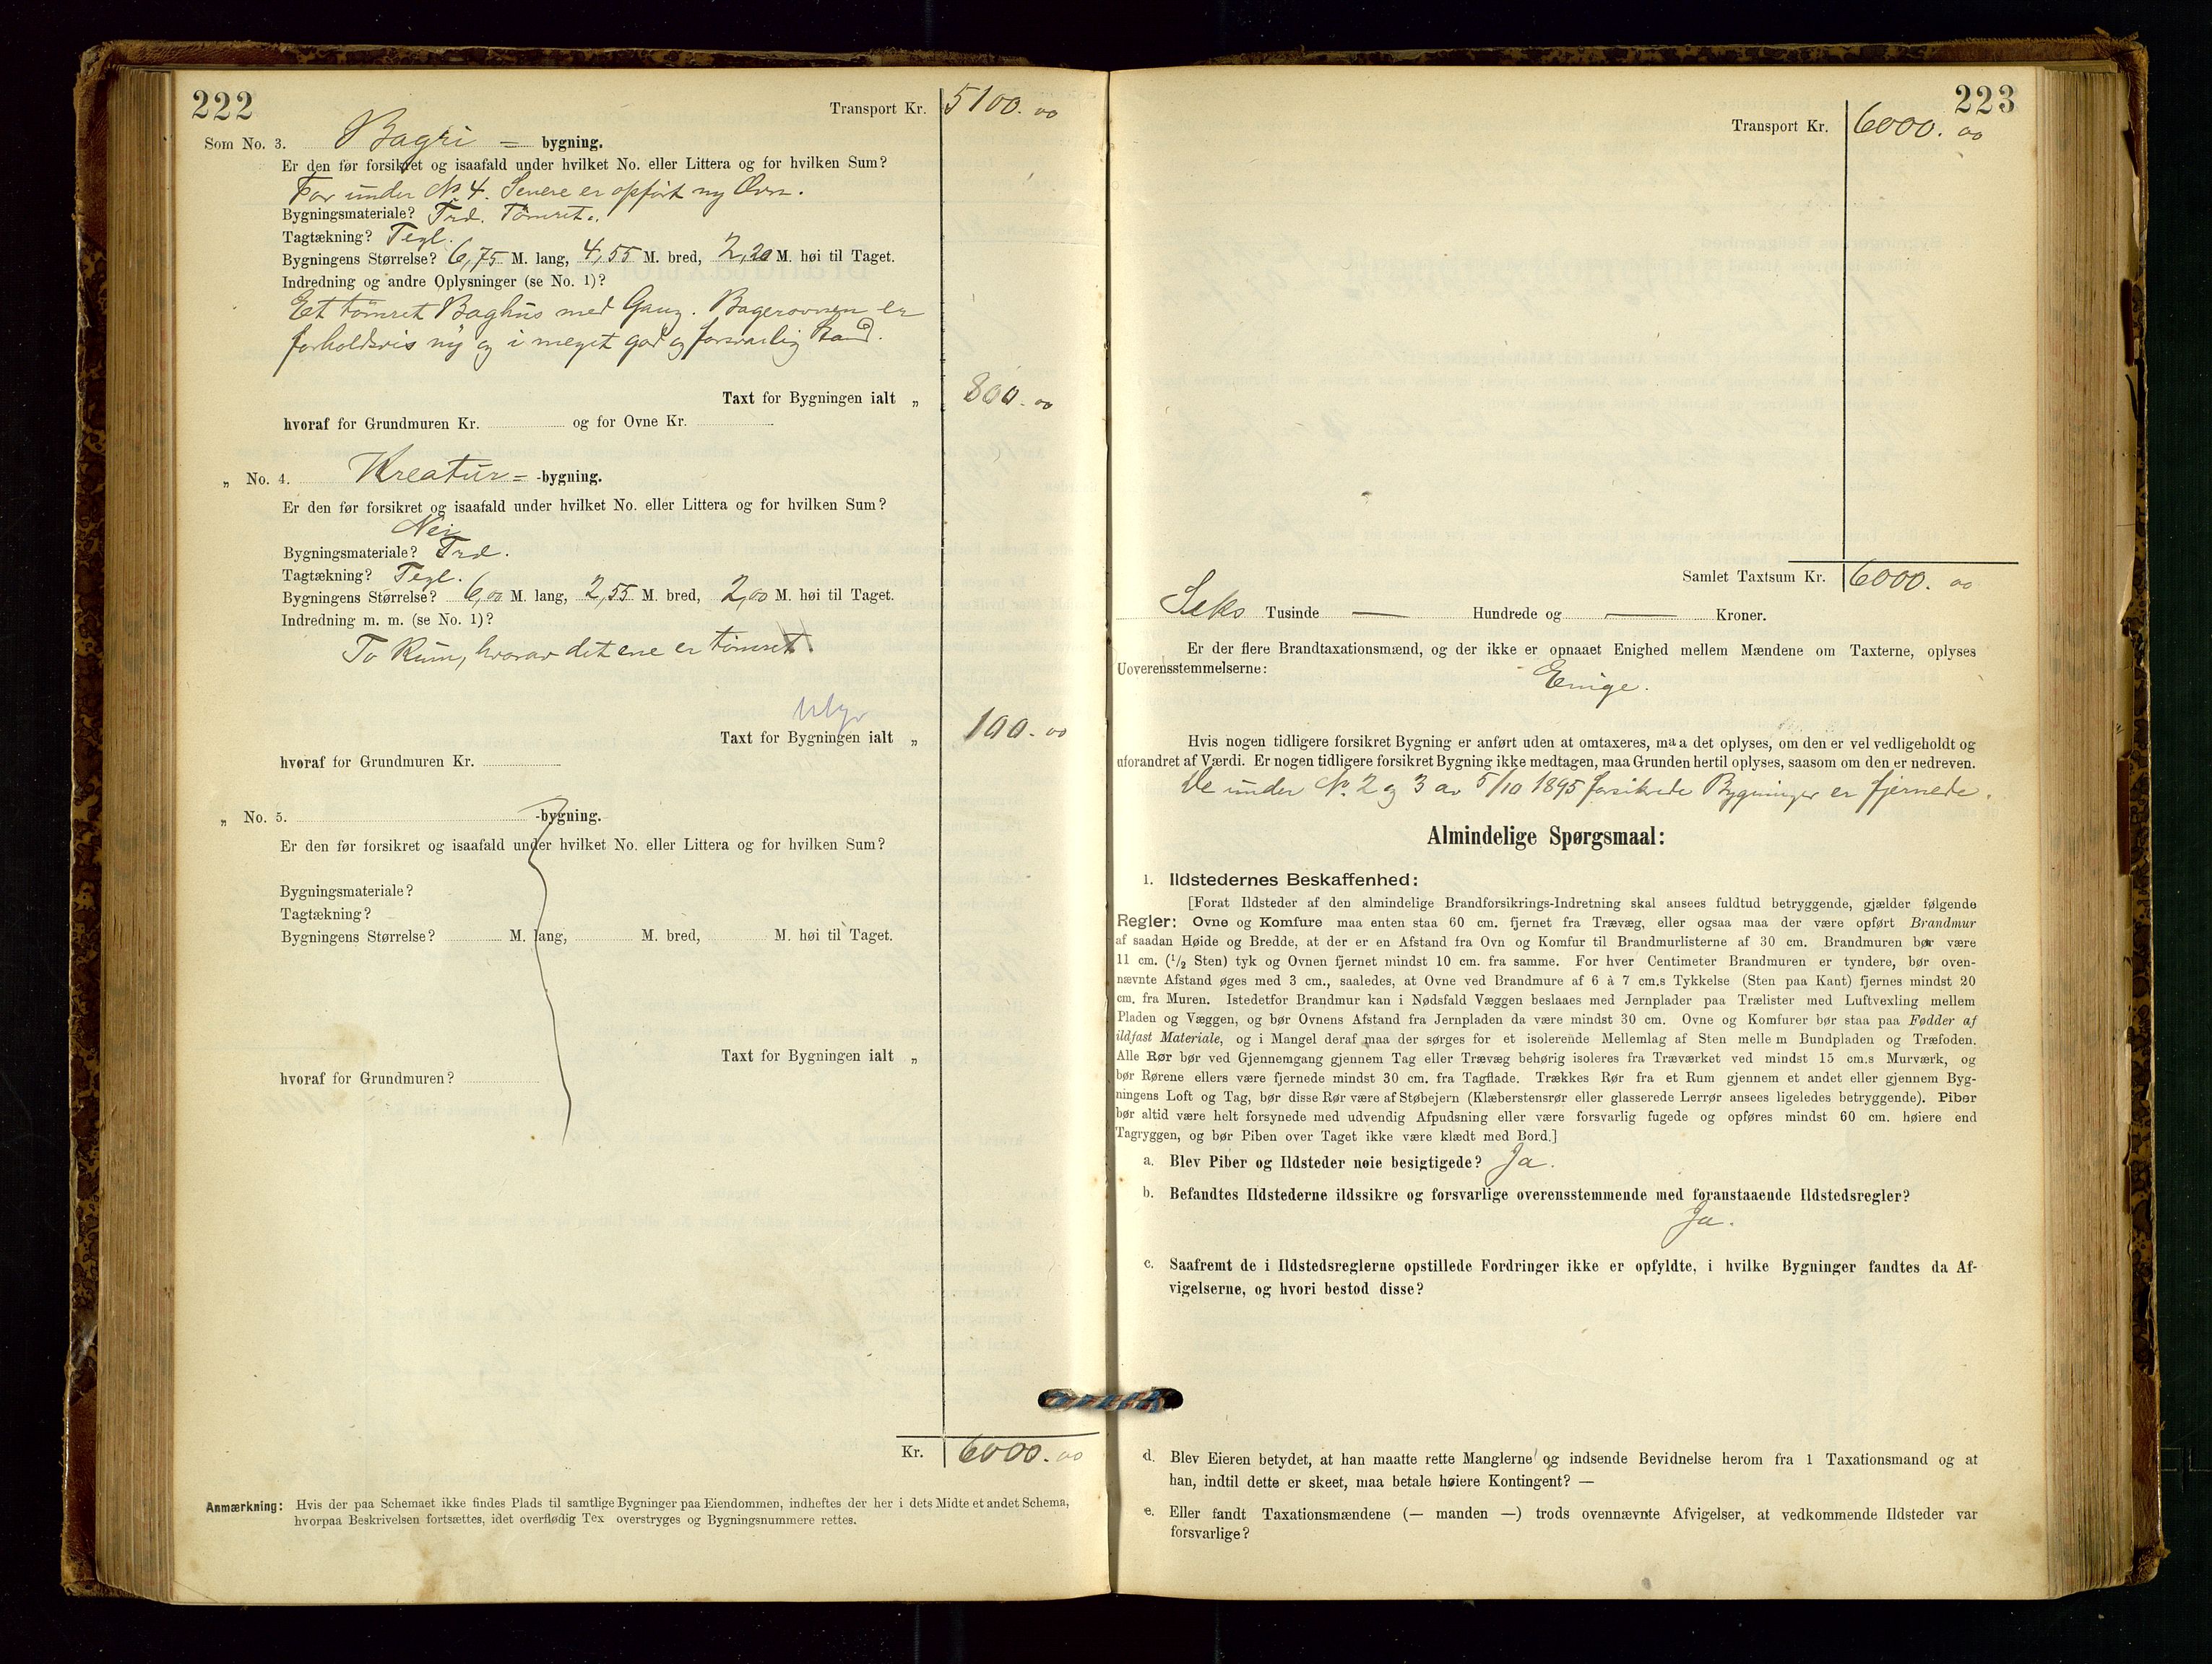 222
Transport Kr. 5100. 00
Som No. 3. Bageri = bygning.
Er den før forsikret og isaafald under hvilket No. eller Littera og for hvilken Sum?
For under No 4. Senere er opført ny Ovn.
Bygningsmateriale? Træ. Tømret.
Tagtækning? Tegl.
Bygningens Størrelse? 6,75 M. lang, 4,55 M. bred, 2,20 M. høi til Taget.
Indredning og andre Oplysninger (se No. 1)?
Et tømret Baghus med Gang. Bagerovnen er
forholdsvis ny og i meget god og forsvarlig Stand.
Taxt for Bygningen ialt „ 800. 00
hvoraf for Grundmuren Kr. og for Ovne Kr.
„ No. 4. Kreatur= -bygning.
Er den før forsikret og isaafald under hvilket No. eller Littera og for hvilken Sum?
Nei
Bygningsmateriale? Træ.
Tagtækning? Tegl.
Bygningens Størrelse? 6,00 M. lang, 2,55 M. bred, 2,00 M. høi til Taget.
Indredning m. m. (se No. 1)?
To Rum, hvorav det ene er tømret.
Taxt for Bygningen ialt „ 100. 00
hvoraf for Grundmuren Kr.
„ No. 5. -bygning.
Er den før forsikret og isaafald under hvilket No. eller Littera og for hvilken Sum?
Bygningsmateriale?
Tagtækning?
Bygningens Størrelse? M. lang, M. bred, M. høi til Taget.
Taxt for Bygningen ialt „
hvoraf for Grundmuren?
Kr. 6000. 00
Anmærkning: Hvis der paa Schemaet ikke findes Plads til samtlige Bygninger paa Eiendommen, indheftes der her i dets Midte et andet Schema,
hvorpaa Beskrivelsen fortsættes, idet overflødig Tex overstryges og Bygningsnummere rettes.
223
Transport Kr. 6000. 00
Samlet Taxtsum Kr. 6000. 00
Seks Tusinde — Hundrede og — Kroner.
Er der flere Brandtaxationsmænd, og der ikke er opnaaet Enighed mellem Mændene om Taxterne, oplyses
Uoverensstemmelserne:
Enige.
Hvis nogen tidligere forsikret Bygning er anført uden at omtaxeres, maa det oplyses, om den er vel vedligeholdt og
uforandret af Værdi. Er nogen tidligere forsikret Bygning ikke medtagen, maa Grunden hertil oplyses, saasom om den er nedreven.
De under No. 2 og 3 av 5/10 1895 forsikrede Bygninger er fjernede.
Almindelige Spørgsmaal:
1. Ildstedernes Beskaffenhed:
[Forat Ildsteder af den almindelige Brandforsikrings-Indretning skal ansees fuldtud betryggende, gjælder følgende
Regler: Ovne og Komfure maa enten staa 60 cm. fjernet fra Trævæg, eller ogsaa maa der være opført Brandmur
af saadan Høide og Bredde, at der er en Afstand fra Ovn og Komfur til Brandmurlisterne af 30 cm. Brandmuren bør være
11 cm. (1/2 Sten) tyk og Ovnen fjernet mindst 10 cm. fra samme. For hver Centimeter Brandmuren er tyndere, bør oven-
nævnte Afstand øges med 3 cm., saaledes, at Ovne ved Brandmure af 6 à 7 cm.s Tykkelse (Sten paa Kant) fjernes mindst 20
cm. fra Muren. Istedetfor Brandmur kan i Nødsfald Væggen beslaaes med Jernplader paa Trælister med Luftvexling mellem
Pladen og Væggen, og bør Ovnens Afstand fra Jernpladen da være mindst 30 cm. Ovne og Komfurer bør staa paa Fødder af
ildfast Materiale, og i Mangel deraf maa der sørges for et isolerende Mellemlag af Sten mellem Bundpladen og Træfoden.
Alle Rør bør ved Gjennemgang gjennem Tag eller Trævæg behørig isoleres fra Træværket ved mindst 15 cm.s Murværk, og
bør Rørene ellers være fjernede mindst 30 cm. fra Tagflade. Trækkes Rør fra et Rum gjennem et andet eller gjennem Byg-
ningens Loft og Tag, bør disse Rør være af Støbejern (Klæberstensrør eller glasserede Lerrør ansees ligeledes betryggende). Piber
bør altid være helt forsynede med udvendig Afpudsning eller være forsvarlig fugede og opføres mindst 60 cm. høiere end
Tagryggen, og bør Piben over Taget ikke være klædt med Bord.]
a. Blev Piber og Ildsteder nøie besigtigede? Ja.
b. Befandtes Ildstederne ildssikre og forsvarlige overensstemmende med foranstaaende Ildstedsregler?
Ja.
c. Saafremt de i Ildstedsreglerne opstillede Fordringer ikke er opfyldte, i hvilke Bygninger fandtes da Af-
vigelserne, og hvori bestod disse?
d. Blev Eieren betydet, at han maatte rette Manglerne og indsende Bevidnelse herom fra 1 Taxationsmand og at
han, indtil dette er skeet, maa betale høiere Kontingent? —
e. Eller fandt Taxationsmændene (— manden —) trods ovennævnte Afvigelser, at vedkommende Ildsteder var
forsvarlige?